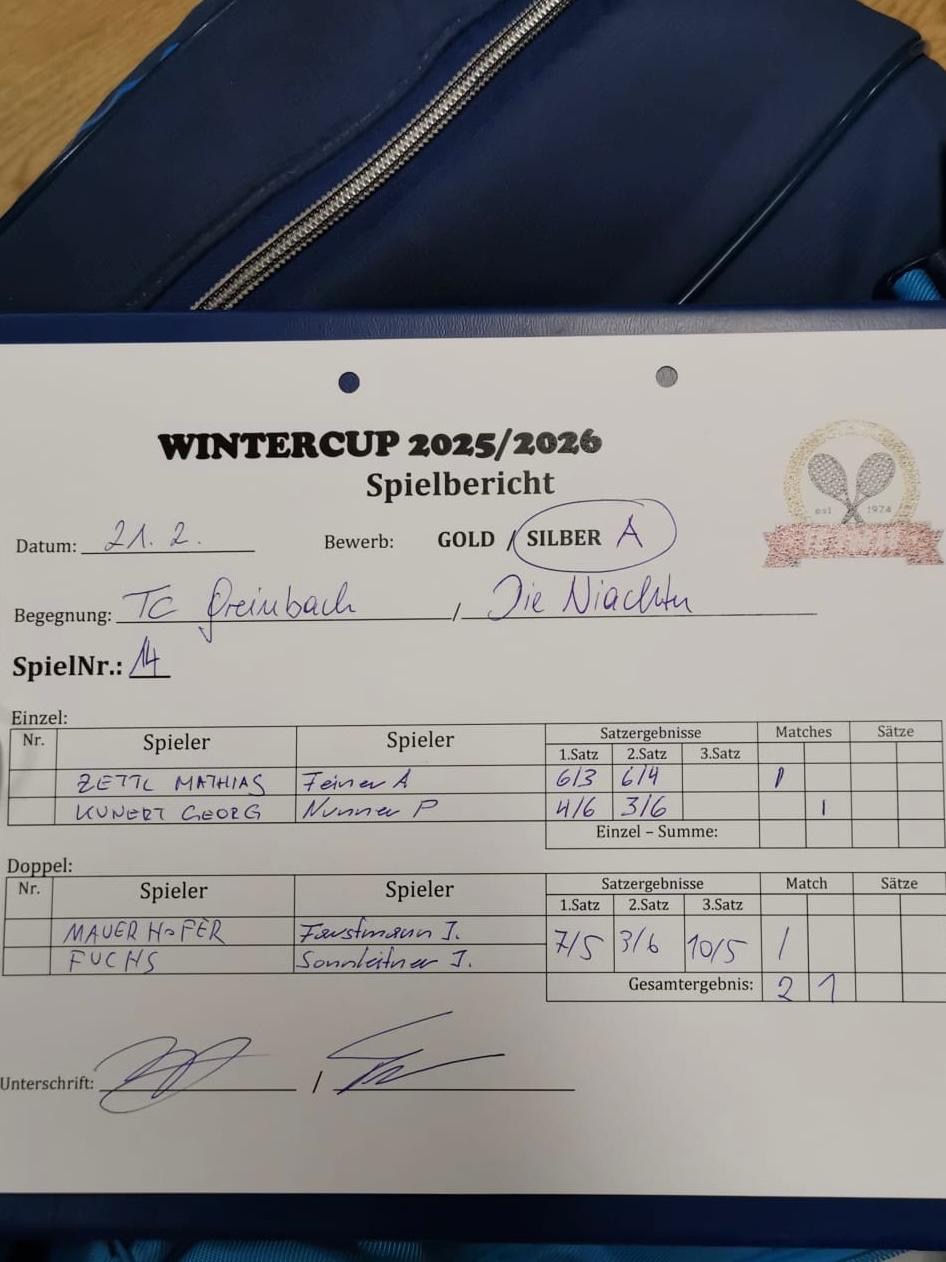 WINTERCUP 2025/2026
Spielbericht
est 1974
Datum: 21. 2. Bewerb: GOLD / SILBER A
Begegnung: TC Greinbach / Die Niachtn
SpielNr.: 14
Einzel:
Nr. Spieler Spieler Satzergebnisse Matches Sätze
1.Satz 2.Satz 3.Satz
ZETTL MATHIAS Feiner A 6/3 6/4 1
KUNERT GEORG Nunner P 4/6 3/6 1
Einzel – Summe:
Doppel:
Nr. Spieler Spieler Satzergebnisse Match Sätze
1.Satz 2.Satz 3.Satz
MAUERHOFER Forstmann I. 7/5 3/6 10/5 1
FUCHS Sonnleitner J.
Gesamtergebnis: 2 1
Unterschrift: /